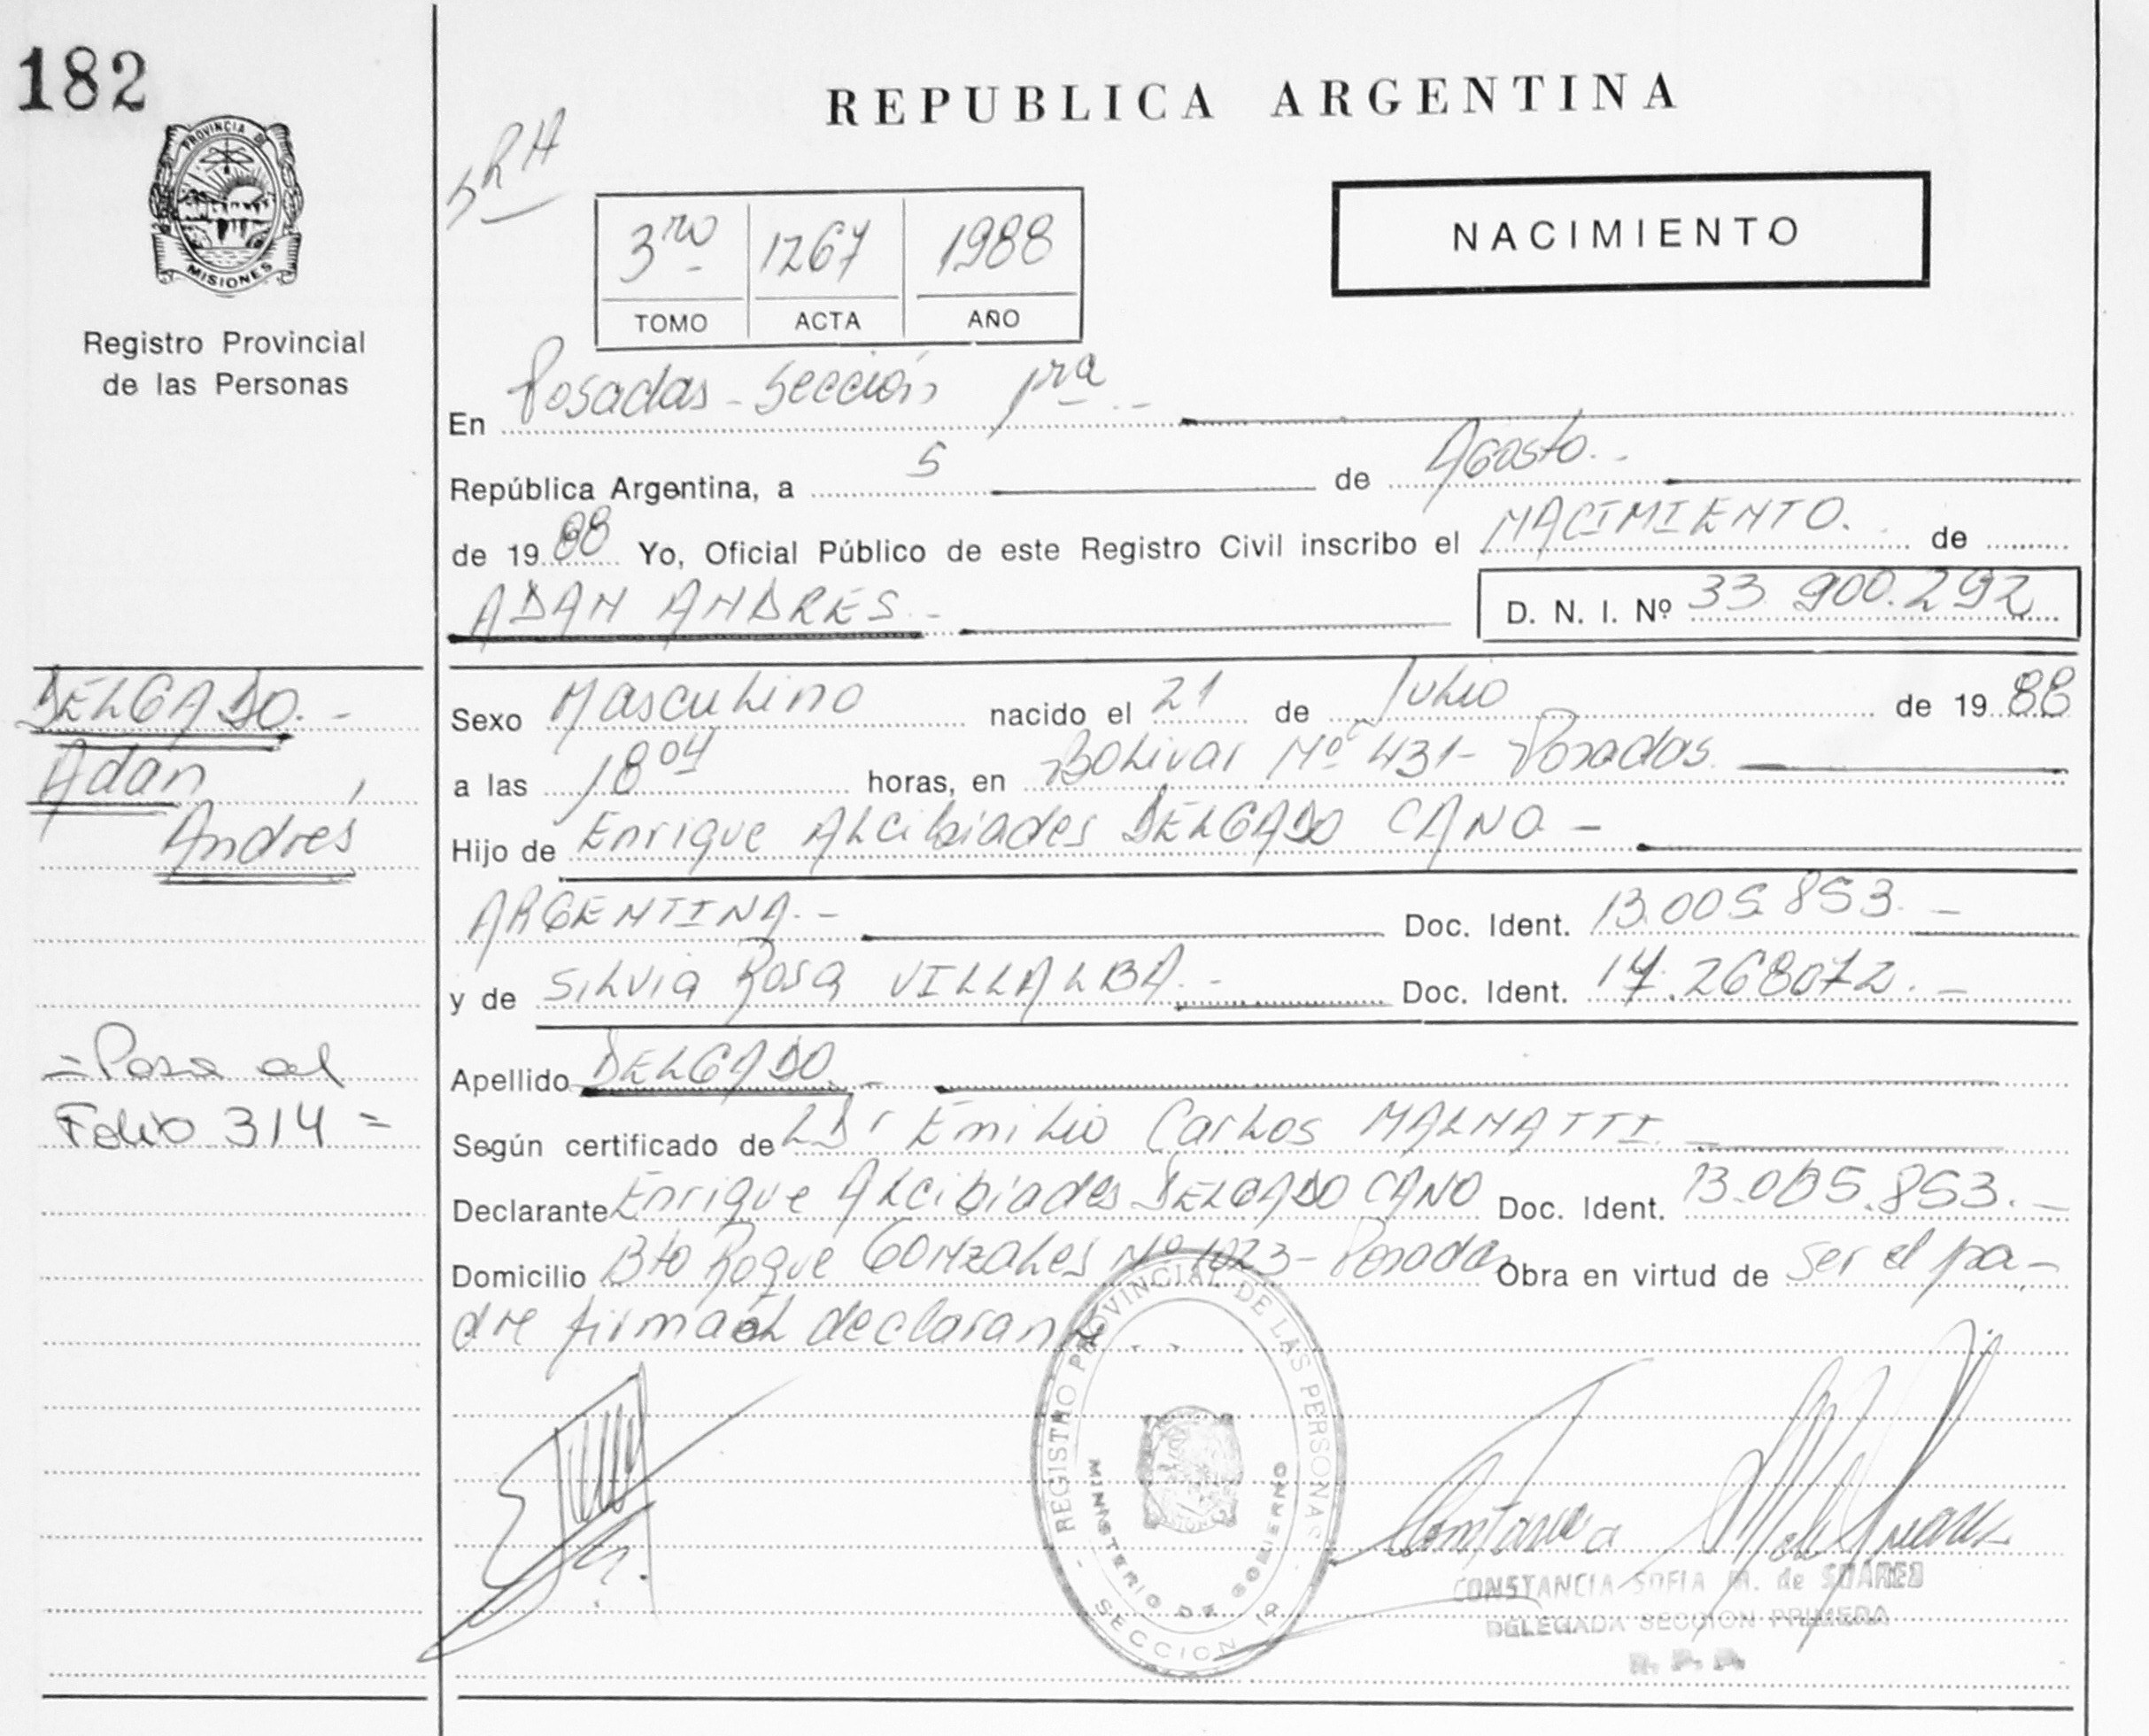 182
PROVINCIA DE
MISIONES
Registro Provincial
de las Personas
REPUBLICA ARGENTINA
3ro 1267 1988
TOMO ACTA AÑO
NACIMIENTO
En Posadas - Sección 1ra
República Argentina, a 5 de Agosto.
de 1988 Yo, Oficial Público de este Registro Civil inscribo el NACIMIENTO. de
ADAN ANDRES.-
D. N. I. Nº 33.900.292
DELGADO.-
Adan
Andrés
Sexo Masculino nacido el 21 de Julio de 1988
a las 18 04 horas, en Bolivar Nº 431- Posadas.
Hijo de Enrique Alcibiades DELGADO CANO -
ARGENTINA.- Doc. Ident. 13.005.853.-
y de Silvia Rosa VILLALBA.- Doc. Ident. 17.268072.-
=Pasa al
Folio 314=
Apellido DELGADO.-
Según certificado de Dr Emilio Carlos MALNATTI.-
Declarante Enrique Alcibiades DELGADO CANO Doc. Ident. 13.005.853.-
Domicilio Bto Roque Gonzales Nº 1023- Posadas Obra en virtud de ser el pa-
dre firma el declarante
REGISTRO PROVINCIAL DE LAS PERSONAS
MINISTERIO DE GOBIERNO
SECCION 1ª
CONSTANCIA SOFIA M. de SUAREZ
DELEGADA SECCION PRIMERA
R. P. P.